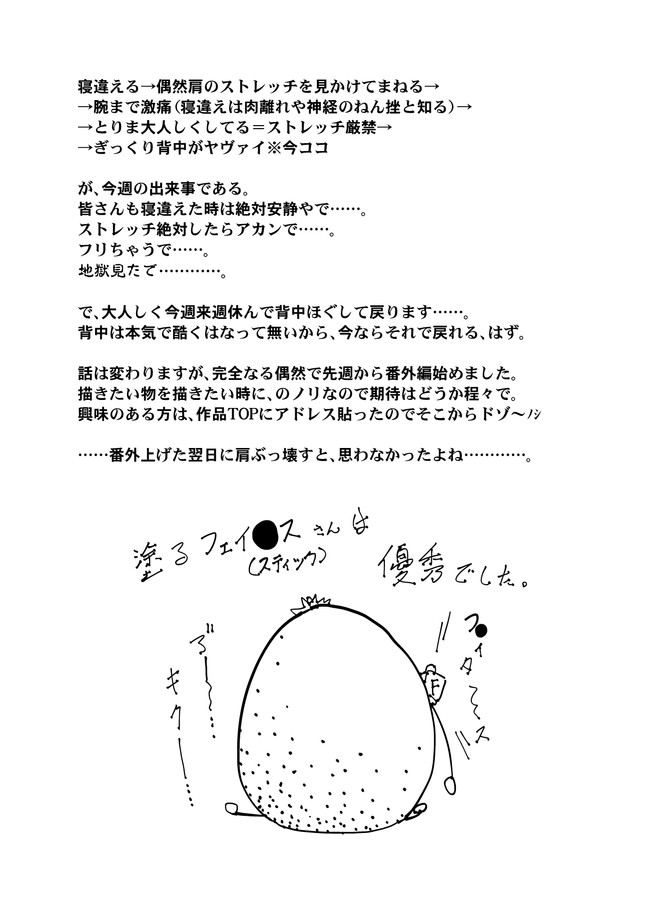 寝違える→偶然肩のストレッチを見かけてまねる→
→腕まで激痛（寝違えは肉離れや神経のねん挫と知る）→
→とりま大人しくしてる＝ストレッチ厳禁→
→ぎっくり背中がヤヴァイ※今ココ
が、今週の出来事である。
皆さんも寝違えた時は絶対安静やで……。
ストレッチ絶対したらアカンで……。
フリちゃうで……。
地獄見たで…………。
で、大人しく今週来週休んで背中ほぐして戻ります……。
背中は本気で酷くはなって無いから、今ならそれで戻れる、はず。
話は変わりますが、完全なる偶然で先週から番外編始めました。
描きたい物を描きたい時に、のノリなので期待はどうか程々で。
興味のある方は、作品TOPにアドレス貼ったのでそこからドゾ〜ﾉｼ
……番外上げた翌日に肩ぶっ壊すと、思わなかったよね…………。
塗るフェイ●スさんは
（スティック）
優秀でした。
フ●イタス
F
キクー…